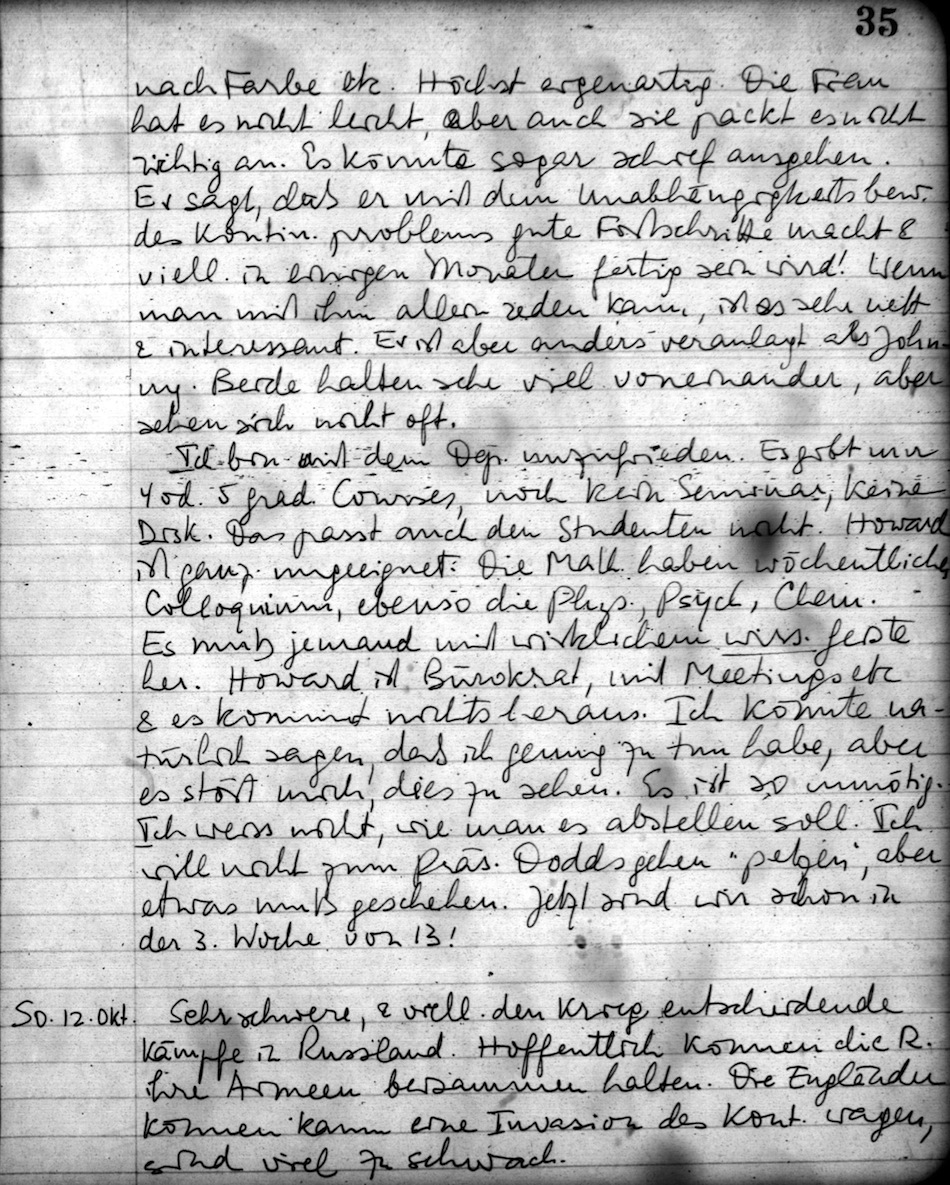 35
nach Farbe etc. Höchst eigenartig. Die Frau
hat es nicht leicht, aber auch sie packt es nicht
richtig an. Es könnte sogar schief ausgehen.
Er sagt, dass er mit dem Unabhängigkeitsbew.
des Kontin. problems gute Fortschritte macht &
viell. in einigen Monaten fertig sein wird! Wenn
man mit ihm allein reden kann, ist es sehr nett
& interessant. Er ist aber anders veranlagt als John-
ny. Beide halten sehr viel voneinander, aber
sehen sich nicht oft.
Ich bin mit dem Dep. unzufrieden. Es gibt nur
4 od. 5 grad. Courses, noch kein Seminar, keine
Disk. Das passt auch den Studenten nicht. Howard
ist ganz ungeeignet: Die Math. haben wöchentliche
Colloquium, ebenso die Phys., Psych, Chem.
Es muß jemand mit wirklichem wiss. Geiste
her. Howard ist Bürokrat, mit Meetings etc
& es kommt nichts heraus. Ich könnte na-
türlich sagen, dass ich genug zu tun habe, aber
es stört mich, dies zu sehen. Es ist so unnötig.
Ich weiss nicht, wie man es abstellen soll. Ich
will nicht zum Präs. Dodds gehen "petzen", aber
etwas muß geschehen. Jetzt sind wir schon in
der 3. Woche von 13!
So. 12. Okt. Sehr schwere, & viell. den Krieg entscheidende
Kämpfe in Russland. Hoffentlich können die R.
ihre Armeen beisammen halten. Die Engländer
können kaum eine Invasion des Kont. wagen,
sind viel zu schwach.